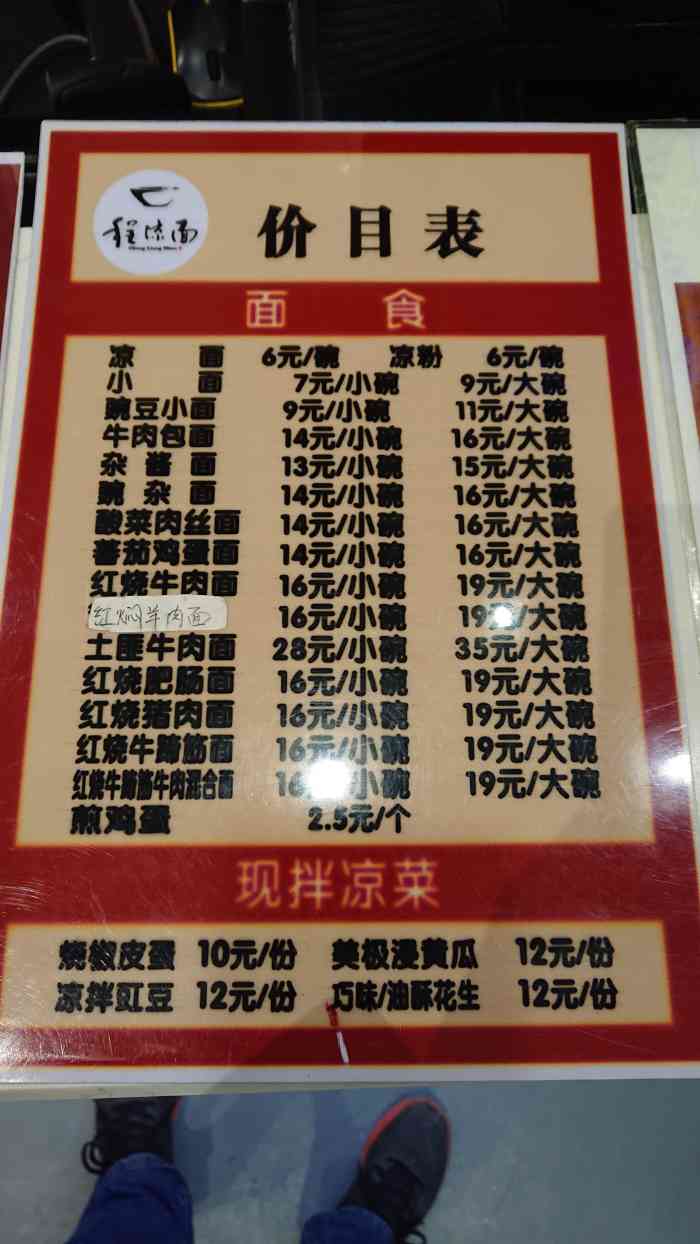 程凉面
Cheng Liang Mian
价目表
面 食
凉 面 6元/碗 凉粉 6元/碗
小 面 7元/小碗 9元/大碗
豌豆小面 9元/小碗 11元/大碗
牛肉包面 14元/小碗 16元/大碗
杂酱面 13元/小碗 15元/大碗
豌杂面 14元/小碗 16元/大碗
酸菜肉丝面 14元/小碗 16元/大碗
蕃茄鸡蛋面 14元/小碗 16元/大碗
红烧牛肉面 16元/小碗 19元/大碗
红焖羊肉面 16元/小碗 19元/大碗
土匪牛肉面 28元/小碗 35元/大碗
红烧肥肠面 16元/小碗 19元/大碗
红烧猪肉面 16元/小碗 19元/大碗
红烧牛蹄筋面 16元/小碗 19元/大碗
红烧牛蹄筋牛肉混合面 16元/小碗 19元/大碗
煎鸡蛋 2.5元/个
现拌凉菜
烧椒皮蛋 10元/份 美极浸黄瓜 12元/份
凉拌豇豆 12元/份 巧味/油酥花生 12元/份